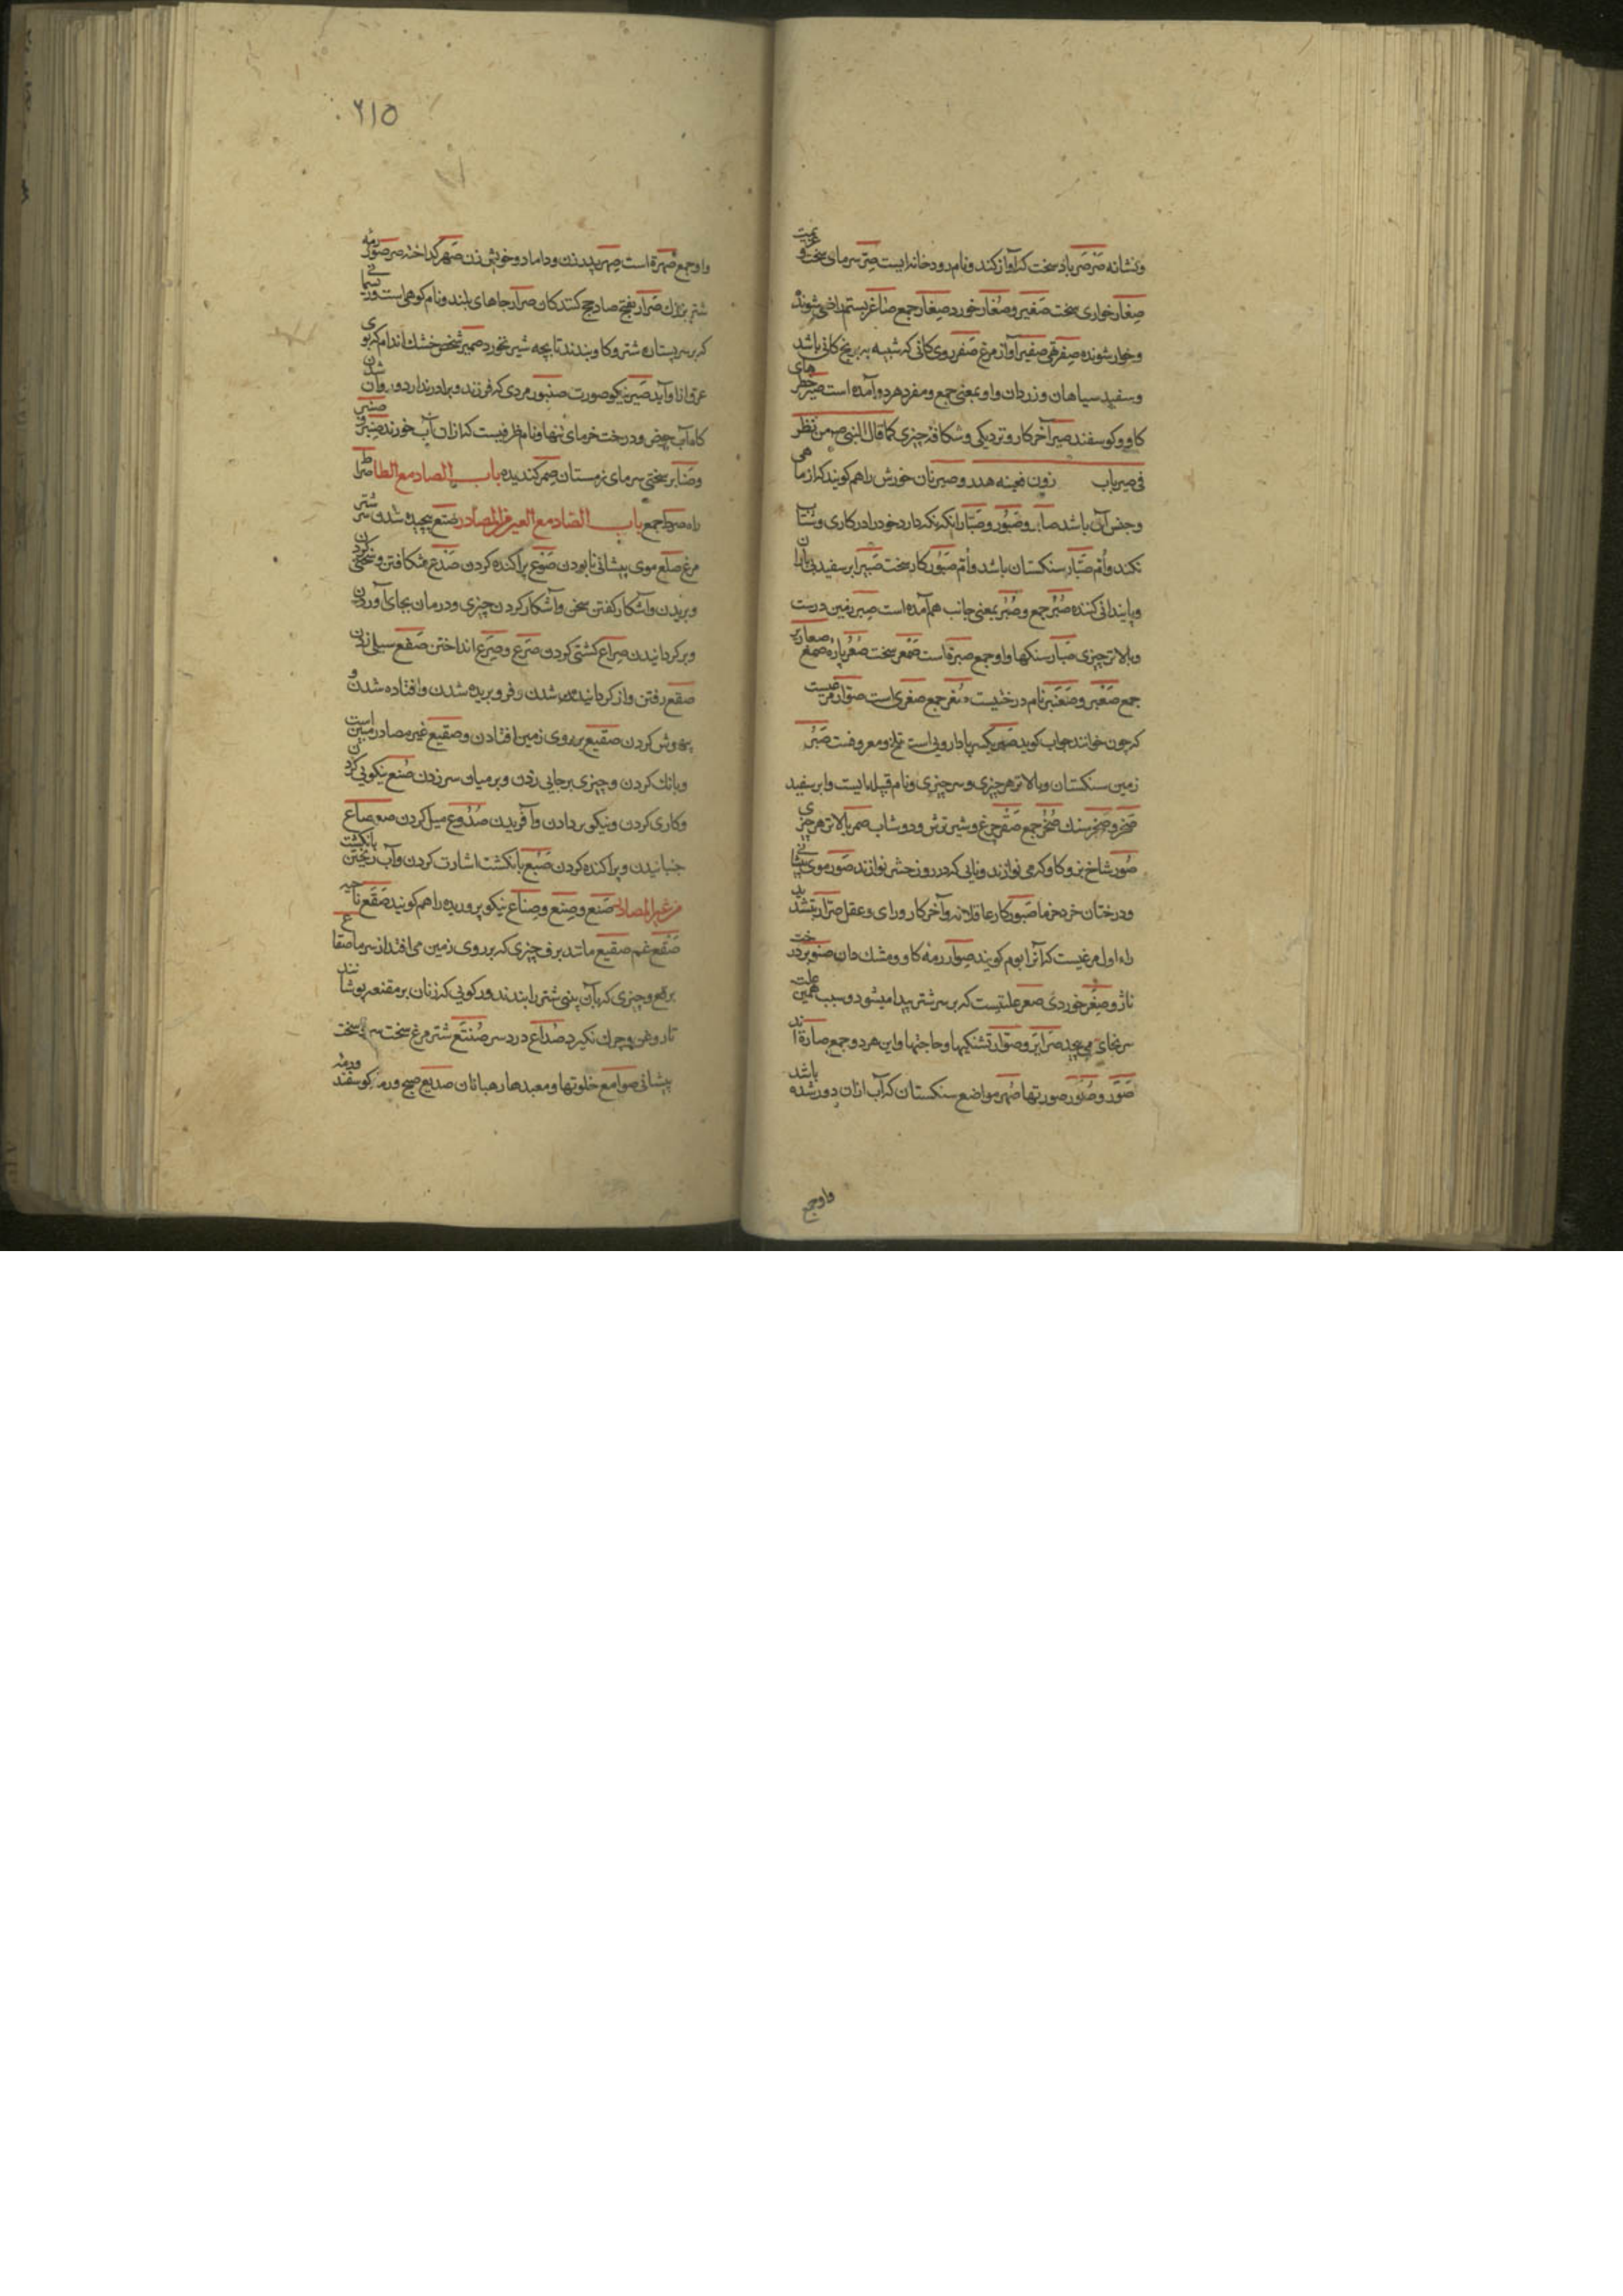 ونشانه صرصر باد سخت که آواز کند و نام رودخانه ایست صر سرمای سخت و
صغار خواری سخت صغیر و صغار خورد صغار جمع صاغر بستم راضی شونده
و خوار شونده صفر تهی صفیر آواز مرغ صفر روی کانی که شبیه به برنج کانی باشد
و سفید سیاهان و زردان و او بمعنی جمع و مفرد هر دو آمده است صیر حظیرهای
کاو و کوسفند صیر آخر کار و نزدیکی و شکاف چیزی کما قال النبی صم من نظر
فی صیر باب هدر و صیر نان خورش را هم کویند که از ماهی
و جنس آن باشد صابر و صبور و صبار انکه نکه دارد خود را در کاری و شتاب
نکند و ام صبار سنکستان باشد و ام صبور کار سخت صبیر ابر سفید بی باران
و پایندانی کننده صبر جمع و صبر بمعنی جانب هم آمده است صبر زمین درست
و بالاتر چیزی صبار سنکها و او جمع صبرة است صمعر سخت صعر پاره صمغ صعاریر
جمع صعبر و صنعبر نام درختیست صغر جمع صغری است صوار مرغیست
که چون خوانند جواب کوید صبر دارویی است تلخ و معروفست صبر
زمین سنکستان و بالاتر هر چیزی و سر چیزی و نام قبیله ایست و ابر سفید
صخر و صخر سنک صخر جمع صقر چرغ و شیر ترش و دوشاب صمر بالاتر هر چیزی
صور شاخ بز و کاو که می نوازند و نایی که در روز حشر نوازند صور موی پیشانی
و درختان خرد خرما صیور کار عاقلانه و آخر کار و رای و عقل صرار بتشدید
راء اول مرغیست که آنرا بوم کویند صوار رمه کاو و مشک دان صنوبر درخت
ناژ و صغر خوردی صعر علتیست که بر سر شتر پیدا میشود و سبب همین علت
سر بجای می پیچد صرایر و صوار تشنکیها و حاجتها و این هر دو جمع صارة اند
صور و صور صورتها صهر مواضع سنکستان که آب ازان دور شده باشد
واوجمع
۶۱۵
و او جمع صهرة است صهر پدر زن و داماد و خویش زن صهر کداخته صرصور رمه
شتر بزرک صرار بفتح صاد جمع کنندکان صرار جاهای بلند و نام کوهی است و ریسمانی
که بر سر پستان شتر و کاو بندند تا بچه شیر نخورد صمیر شخص خشک اندام که بوی
عرق ازو آید صیر نیکو صورت صنبور مردی که فرزند و برادر ندارد و روان شدن
کاه آب حوض و درخت خرمای تنها و نام ظرفیست که ازان آب خورند صنبر و صنبر
و صنابر سختی سرمای زمستان صمر کندیده باب الصاد مع الطا صراط
راه صرط جمع باب الصاد مع العین من المصادر صنع پیچیده شدن سر شتر
مرغ صلع موی پیشانی نابودن صوع پراکنده کردن صدع شکافتن و سخنی کردن
و بریدن و آشکار کفتن سخن و آشکار کردن چیزی و درمان بجای آوردن
و بر کردانیدن صراع کشتی کردن صرع و صرع انداختن صقع سیلی زدن
صقع رفتن و از کردانیده شدن و فرو بریده شدن و افتاده شدن و
بیهوش کردن صقیع بر روی زمین افتادن و صقیع غیر مصادر مبین است
و بانک کردن و چیزی بر جایی زدن و بر میان سر زدن صنع نیکویی کردن
و کاری کردن و نیکو بر دادن و آفریدن صدوع میل کردن صعصاع
جنبانیدن و پراکنده کردن صبع بانکشت اشارت کردن و آب ریختن بانکشت
من غیر المصادر صنع و صنع و صناع نیکو پرورده را هم کویند صقع ناحیه
صقع غم صقیع مانند برف چیزی که بر روی زمین می افتد از سرما صقاع
برقع و چیزی که بآن بینی شتر را بندند و رکویی که زنان بر مقنعه پوشانند
تا روغن و چرک نکیرد صداع درد سر صنتع شتر مرغ سخت سر سخت
پیشانی صوامع خلوتها و معبدهاء رهبانان صدیع صبح و رمه کوسفند و رمه